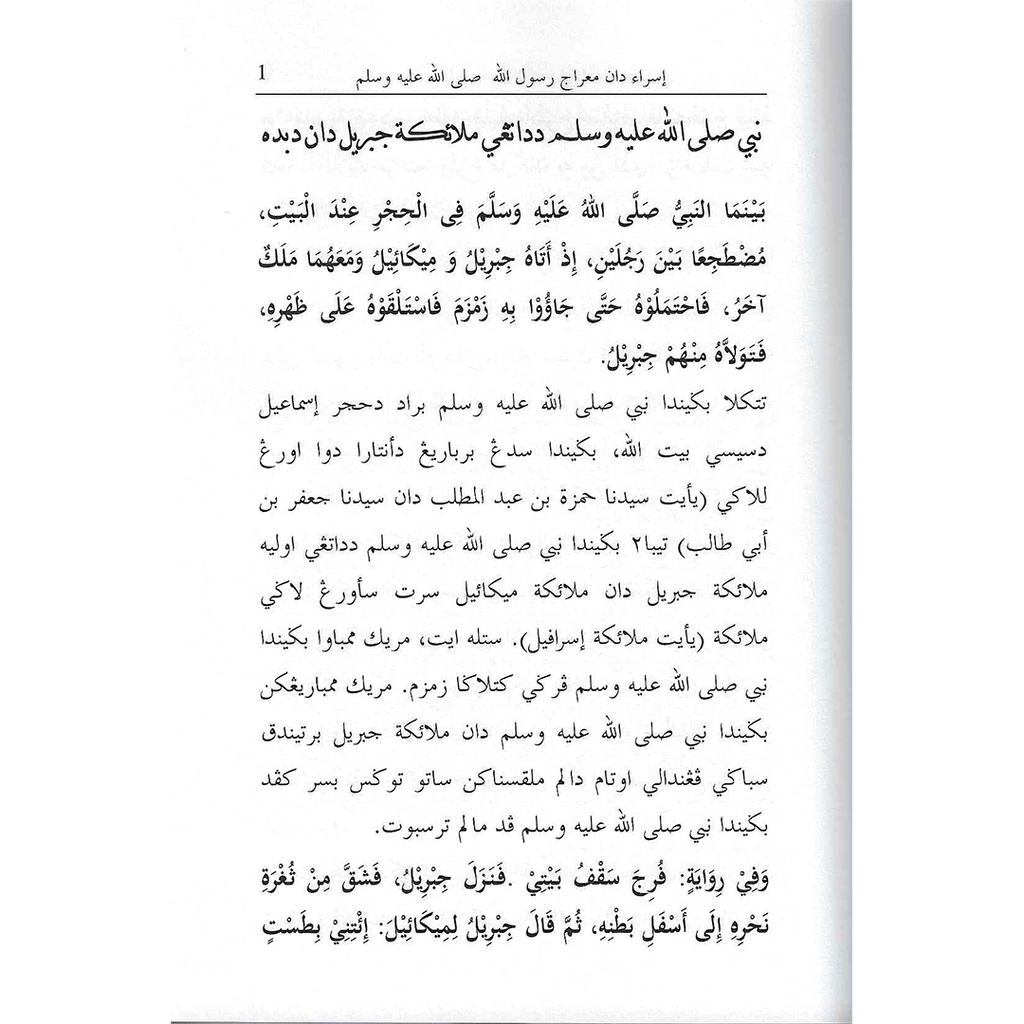 إسراء دان معراج رسول الله صلى الله عليه وسلم 1
نبي صلى الله عليه وسلم دداتڠي ملائكة جبريل دان دبده
بَيْنَمَا النَبِيُّ صَلَّى اللهُ عَلَيْهِ وَسَلَّمَ فِى الْحِجْرِ عِنْدَ الْبَيْتِ،
مُضْطَجِعًا بَيْنَ رَجُلَيْنِ، إِذْ أَتَاهُ جِبْرِيْلُ وَ مِيْكَائِيْلُ وَمَعَهُمَا مَلَكٌ
آخَرُ، فَاحْتَمَلُوْهُ حَتَّى جَاؤُوْا بِهِ زَمْزَمَ فَاسْتَلْقَوْهُ عَلَى ظَهْرِهِ،
فَتَوَلاَّهُ مِنْهُمْ جِبْرِيْلُ.
تتكلا بݢيندا نبي صلى الله عليه وسلم براد دحجر إسماعيل
دسيسي بيت الله، بݢيندا سدڠ برباريڠ دأنتارا دوا اورڠ
للاكي (يأيت سيدنا حمزة بن عبد المطلب دان سيدنا جعفر بن
أبي طالب) تيبا٢ بݢيندا نبي صلى الله عليه وسلم دداتڠي اوليه
ملائكة جبريل دان ملائكة ميكائيل سرت سأورڠ لاݢي
ملائكة (يأيت ملائكة إسرافيل). ستله ايت، مريك ممباوا بݢيندا
نبي صلى الله عليه وسلم ڤرݢي كتلاݢا زمزم. مريك ممباريڠكن
بݢيندا نبي صلى الله عليه وسلم دان ملائكة جبريل برتيندق
سباݢي ڤڠندالي اوتام دالم ملقسناكن ساتو توݢس بسر كڤد
بݢيندا نبي صلى الله عليه وسلم ڤد مالم ترسبوت.
وَفِيْ رِوَايَةٍ: فُرِجَ سَقْفُ بَيْتِيْ .فَنَزَلَ جِبْرِيْلُ، فَشَقَّ مِنْ ثُغْرَةِ
نَحْرِهِ إِلَى أَسْفَلِ بَطْنِهِ، ثُمَّ قَالَ جِبْرِيْلُ لِمِيْكَائِيْلَ: إِئْتِنِيْ بِطَسْتٍ